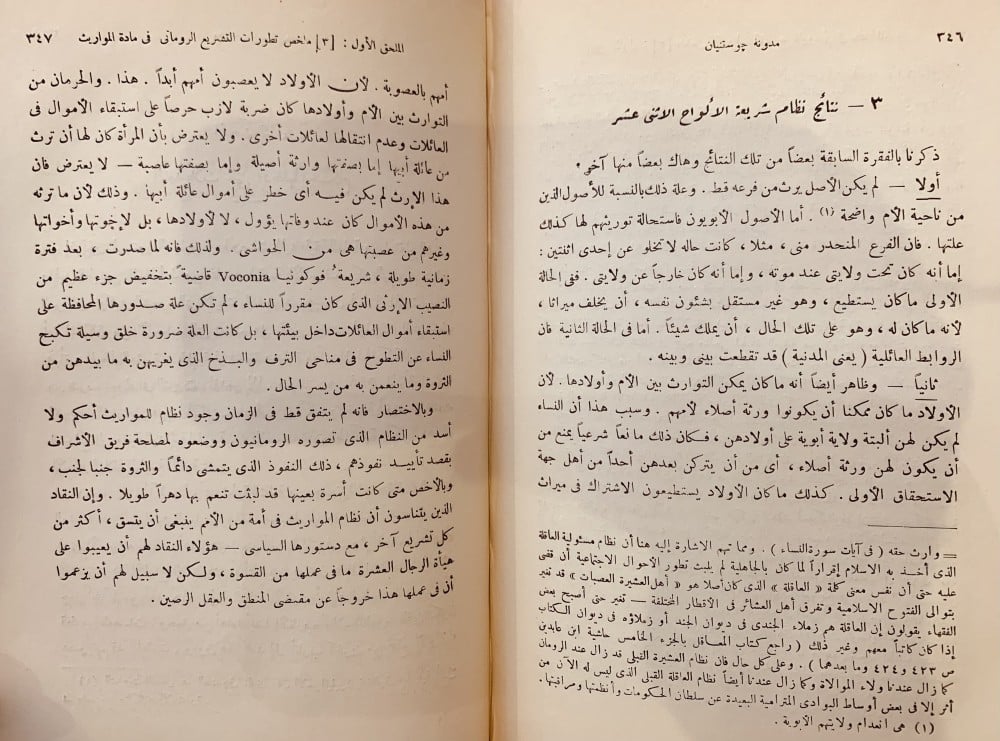 ٣٤٦
مدونة چوستنيان
٣ — نتائج نظام شريعة الألواح الاثنى عشر
ذكرنا بالفقرة السابقة بعضاً من تلك النتائج وهاك بعضاً منها آخر.
أولا — لم يكن الأصل يرث من فرعه قط. وعلة ذلك بالنسبة للأصول الذين
من ناحية الأم واضحة (١). أما الأصول الأبويون فاستحالة توريثهم لها كذلك
علتها. فان الفرع المنحدر منى، مثلا، كانت حاله لا تخلو عن إحدى اثنتين:
إما أنه كان تحت ولايتى عند موته، وإما أنه كان خارجاً عن ولايتى. ففى الحالة
الأولى ماكان يستطيع، وهو غير مستقل بشئون نفسه، أن يخلف ميراثا،
لأنه ماكان له، وهو على تلك الحال، أن يملك شيئاً. أما فى الحالة الثانية فان
الروابط العائلية (يعنى المدنية) قد تقطعت بينى وبينه.
ثانياً — وظاهر أيضاً أنه ماكان يمكن التوارث بين الأم وأولادها. لأن
الأولاد ماكان ممكنا أن يكونوا ورثة أصلاء لأمهم. وسبب هذا أن النساء
لم يكن لهن ألبتة ولاية أبوية على أولادهن، فكان ذلك مانعاً شرعياً يمنع من
أن يكون لهن ورثة أصلاء، أى من أن يتركن بعدهن أحداً من أهل جهة
الاستحقاق الأولى. كذلك ماكان الأولاد يستطيعون الاشتراك فى ميراث
= وارث حقه (فى آيات سورة النساء). ومما تهم الاشارة إليه هنا أن نظام مسئولية العاقلة
الذى أخذ به الاسلام إقراراً لما كان بالجاهلية لم يلبث تطور الأحوال الاجتماعية أن قضى
عليه حتى أن نفس معنى كلمة «العاقلة» الذى كان أصلا هو «أهل العشيرة العصبات» قد تغير
بتوالى الفتوح الاسلامية وتفرق أهل العشائر فى الأقطار المختلفة — تغير حتى أصبح بعض
الفقهاء يقولون إن العاقلة هم زملاء الجندى فى ديوان الجند أو زملاؤه فى ديوان الكتاب
إذا كان كاتباً معهم وغير ذلك (راجع كتاب المعاقل بالجزء الخامس حاشية ابن عابدين
ص ٤٢٣ و ٤٢٤ وما بعدهما). وعلى كل حال فان نظام العشيرة القبلى قد زال عند الرومان
كما زال عندنا ولاء الموالاة وكما زال عندنا أيضاً نظام العاقلة القبلى الذى ليس له الآن من
أثر إلا فى بعض أوساط البوادى المترامية البعيدة عن سلطان الحكومات وأنظمتها ومراقبتها.
(١) هى انعدام ولايتهم الأبوية.
الملحق الأول: [٣] ملخص تطورات التشريع الرومانى فى مادة المواريث ٣٤٧
أمهم بالعصوبة. لأن الأولاد لا يعصبون أمهم أبداً. هذا. والحرمان من
التوارث بين الأم وأولادها كان ضربة لازب حرصاً على استبقاء الأموال فى
العائلات وعدم انتقالها لعائلات أخرى. ولا يعترض بأن المرأة كان لها أن ترث
من عائلة أبيها إما بصفتها وارثة أصيلة وإما بصفتها عاصبة — لا يعترض فان
هذا الإرث لم يكن فيه أى خطر على أموال عائلة أبيها. وذلك لأن ما ترثه
من هذه الأموال كان عند وفاتها يؤول، لا لأولادها، بل لإخوتها وأخواتها
وغيرهم من عصبتها هى من الحواشى. ولذلك فانه لما صدرت، بعد فترة
زمانية طويلة، شريعة ُ فوكونيا Voconia قاضية ً بتخفيض جزء عظيم من
النصيب الإرثى الذى كان مقرراً للنساء، لم تكن علة صدورها المحافظة على
استبقاء أموال العائلات داخل بيئتها، بل كانت العلة ضرورة خلق وسيلة تكبح
النساء عن التطوح فى مناحى الترف والبذخ الذى يغريهن به ما بيدهن من
الثروة وما ينعمن به من يسر الحال.
وبالاختصار فانه لم يتفق قط فى الزمان وجود نظام للمواريث أحكم ولا
أسد من النظام الذى تصوره الرومانيون ووضعوه لمصلحة فريق الأشراف
بقصد تأييد نفوذهم، ذلك النفوذ الذى يتمشى دائماً والثروة جنبا لجنب،
وبالأخص متى كانت أسرة بعينها قد لبثت تنعم بها دهراً طويلا. وإن النقاد
الذين يتناسون أن نظام المواريث فى أمة من الأمم ينبغى أن يتسق، أكثر من
كل تشريع آخر، مع دستورها السياسى — هؤلاء النقاد لهم أن يعيبوا على
هيأة الرجال العشرة ما فى عملها من القسوة، ولكن لا سبيل لهم أن يزعموا
أن فى عملها هذا خروجاً عن مقتضى المنطق والعقل الرصين.